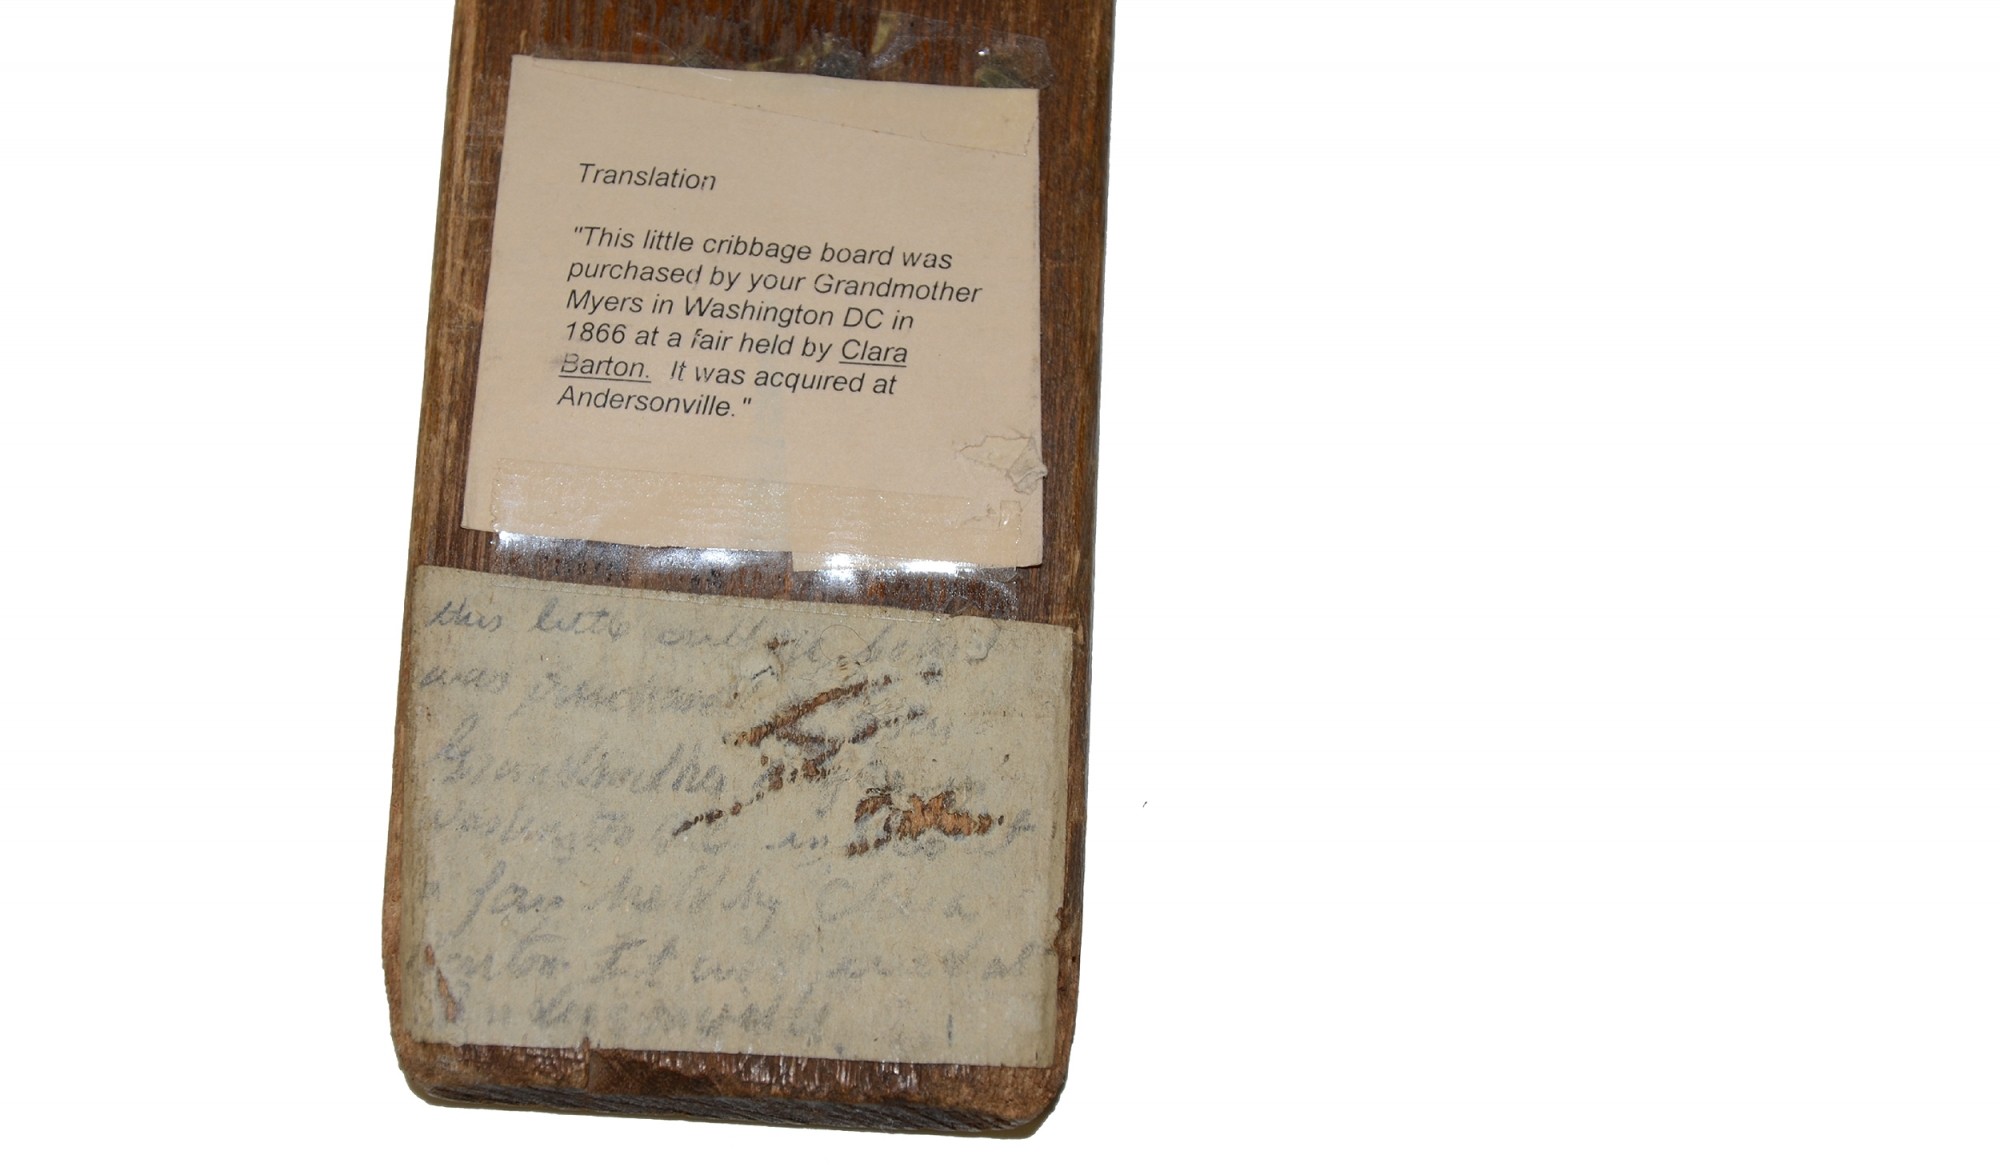 Translation
"This little cribbage board was
purchased by your Grandmother
Myers in Washington DC in
1866 at a fair held by Clara
Barton. It was acquired at
Andersonville."
this little cribbage board
was purchased
Grandmother
Washington DC in
a fair held by Clara
Barton It was at